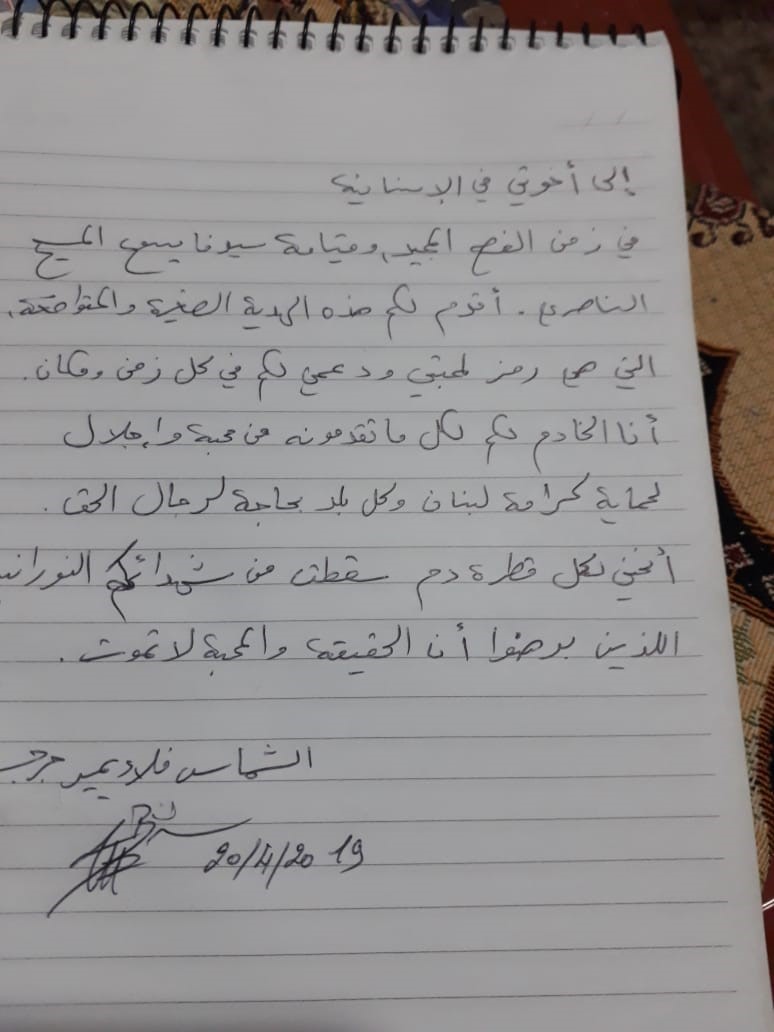 إلى أخوتي في الإنسانية
في زمن الفصح المجيد، وقيامة سيدنا يسوع المسيح
الناصري. أقدم لكم هذه الهدية الصغيرة والمتواضعة،
التي هي رمز لمحبتي ودعمي لكم في كل زمن ومكان.
أنا الخادم لكم لكل ما تقدمونه من محبة وإجلال
لحماية كرامة لبنان وكل بلد بحاجة لرجال الحق.
أنحني لكل قطرة دم سقطت من شهدائكم
اللذين برهنوا أن الحقيقة والمحبة لا تموت.
الشماس فلاديمير
20/4/2019